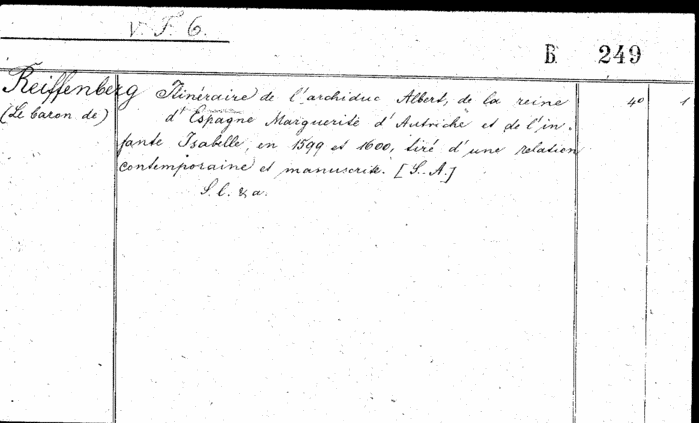 V. F. 6.
B. 249
Reiffenberg
(Le baron de)
Itinéraire de l'archiduc Albert, de la reine
d'Espagne Marguerite d'Autriche et de l'in-
fante Isabelle, en 1599 et 1600, tiré d'une relation
contemporaine et manuscrite. [S. A.]
S. l. & a.
4º
1